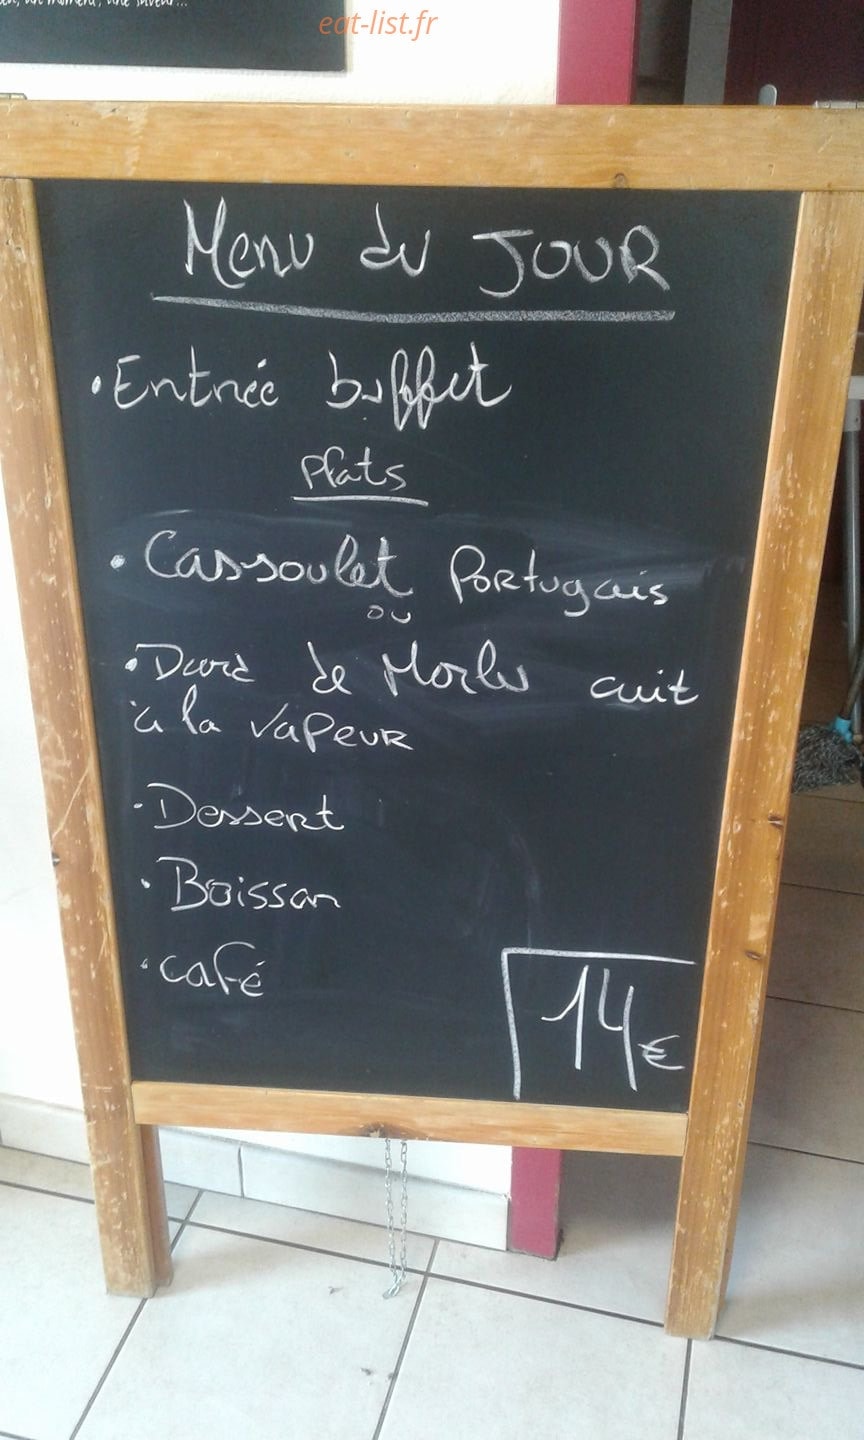 eat-list.fr
un moment, une saveur...
Menu du JOUR
• Entrée buffet
Plats
• Cassoulet PORTugais
ou
• Dard de Morlu cuit
à la VAPEUR
• Dessert
• Boisson
• café
14€